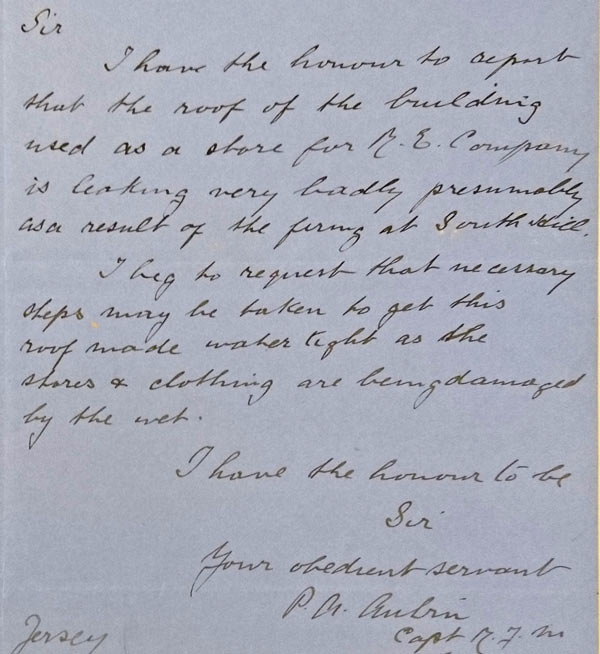 Sir
I have the honour to report
that the roof of the building
used as a store for R. E. Company
is leaking very badly presumably
as a result of the firing at South Hill.
I beg to request that necessary
steps may be taken to get this
roof made water tight as the
stores & clothing are being damaged
by the wet.
I have the honour to be
Sir
Your obedient servant
P. Aubin
Jersey
Capt